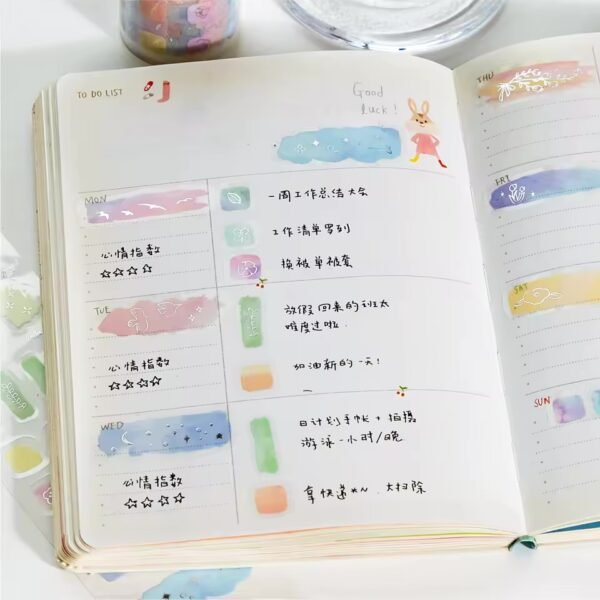 TO DO LIST
Good
luck!
MON
一周工作总结大会
工作清单罗列
心情指数
☆☆☆☆
换被单被套
TUE
放假回来的班太
难度过啦.
心情指数
☆☆☆☆
加油新的一天!
WED
日计划手帐+拍摄
游泳一小时/晚
心情指数
☆☆☆☆
拿快递 大扫除
THU
FRI
SAT
SUN